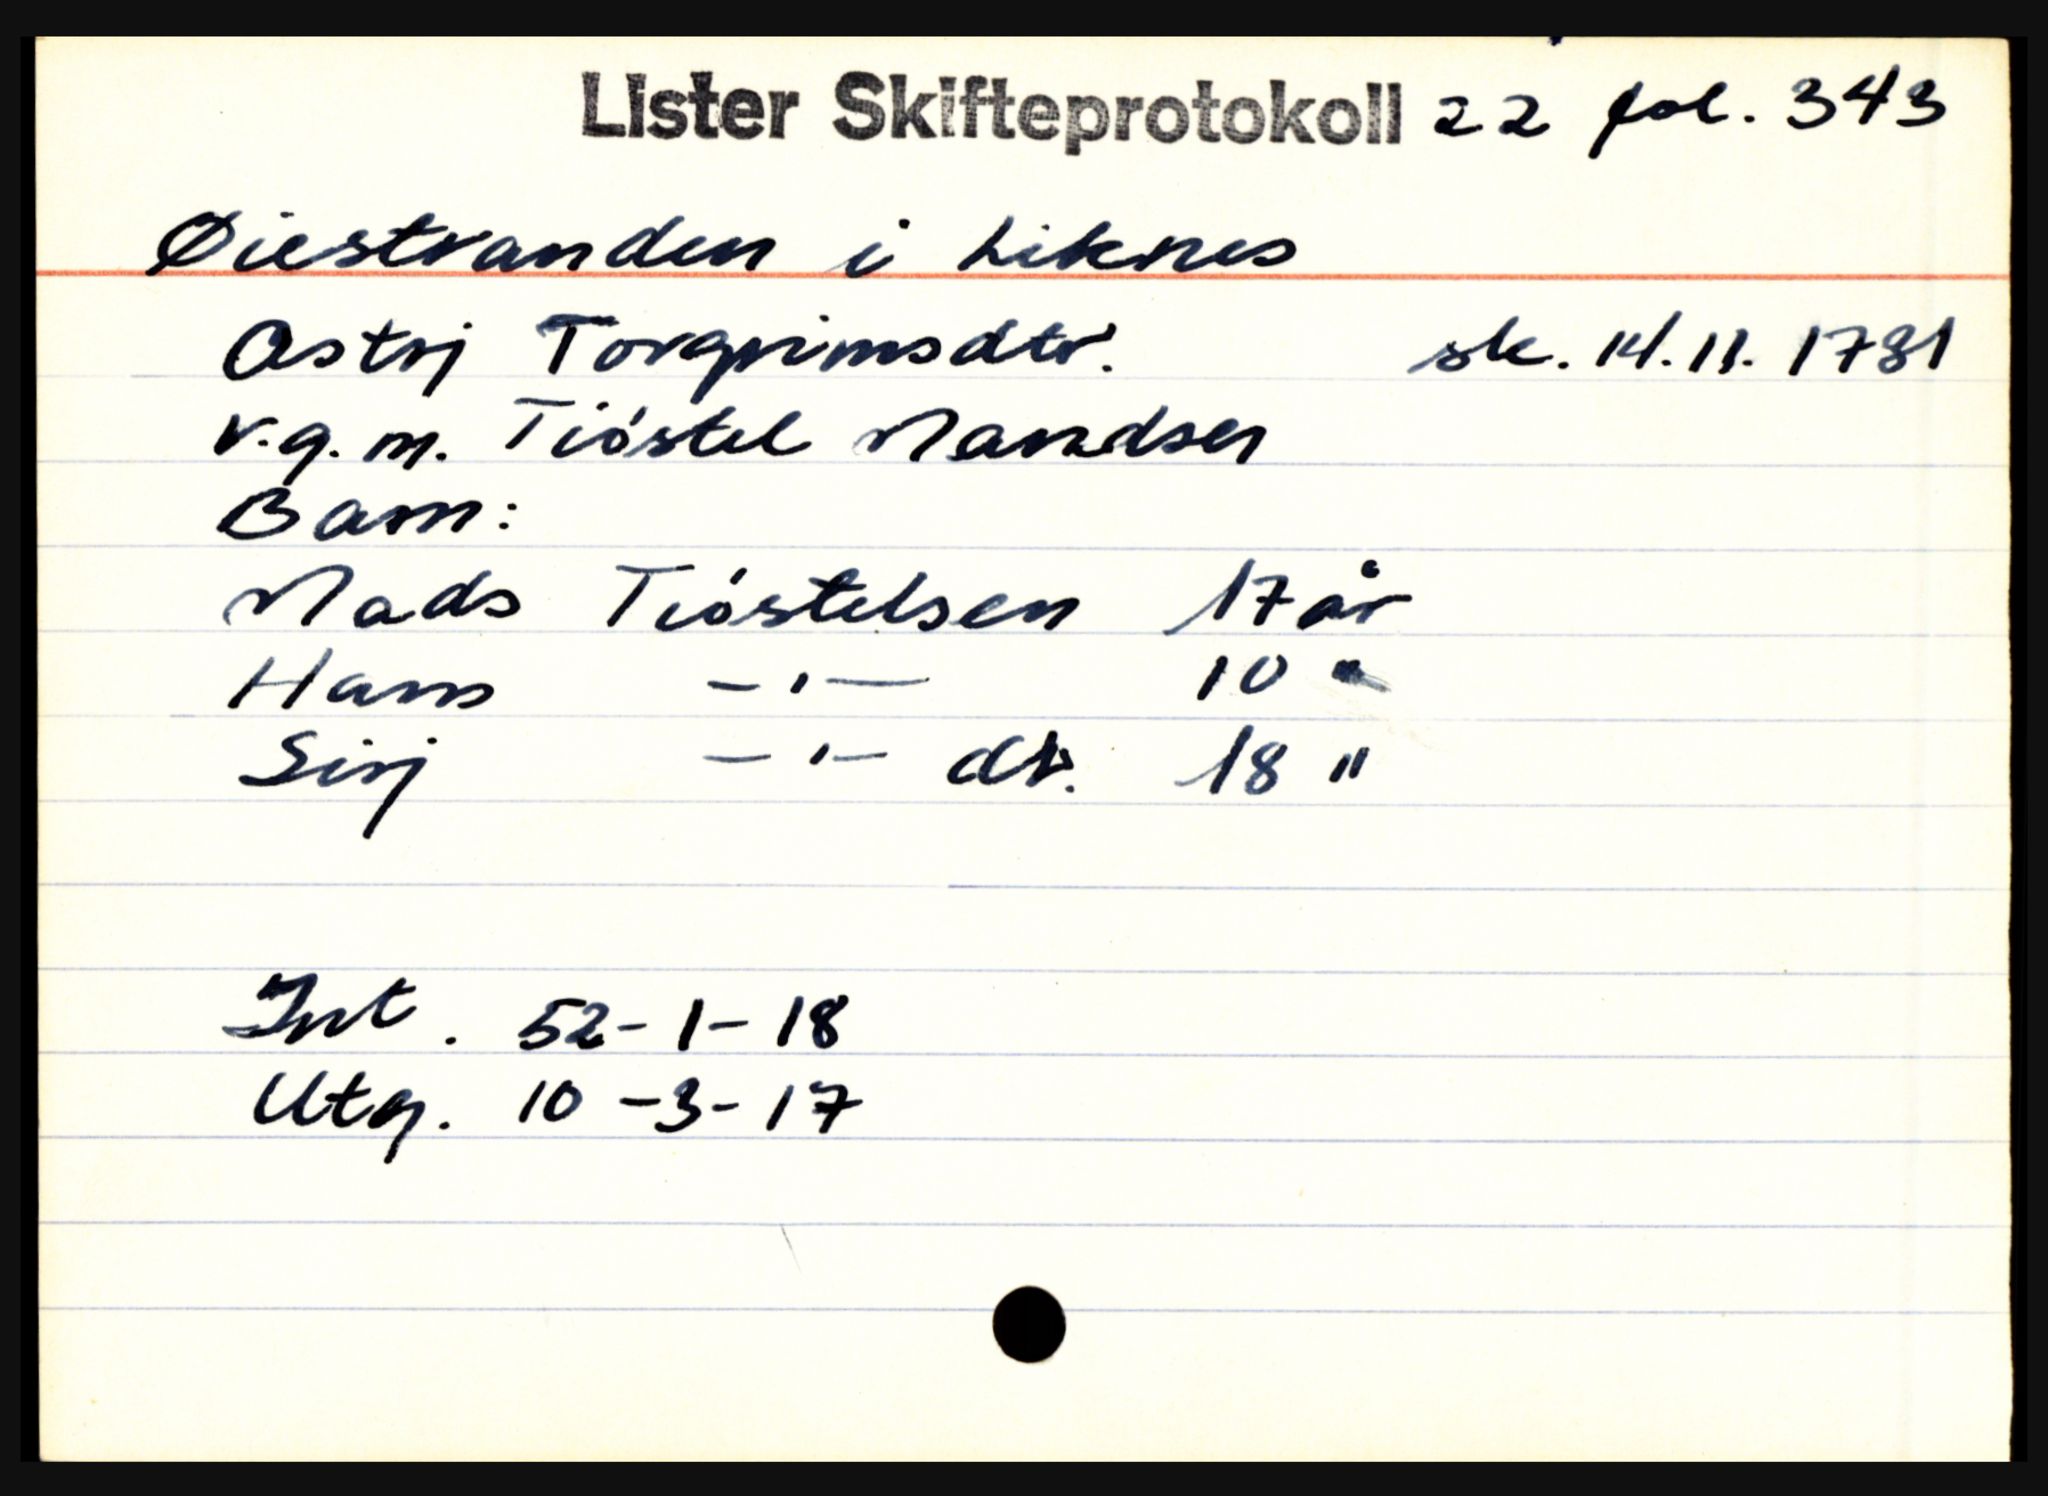 Lister Skifteprotokoll 22 fol. 343
Øiestranden i Liknes
Astrj Torgrimsdtr. sk. 14.11.1781
v.g.m. Tióstel Mandsen
Barn:
Mads Tióstelsen 17 år
Hans -"- 10 "
Sirj -"- dtr. 18 "
Int. 52-1-18
Utg. 10-3-17